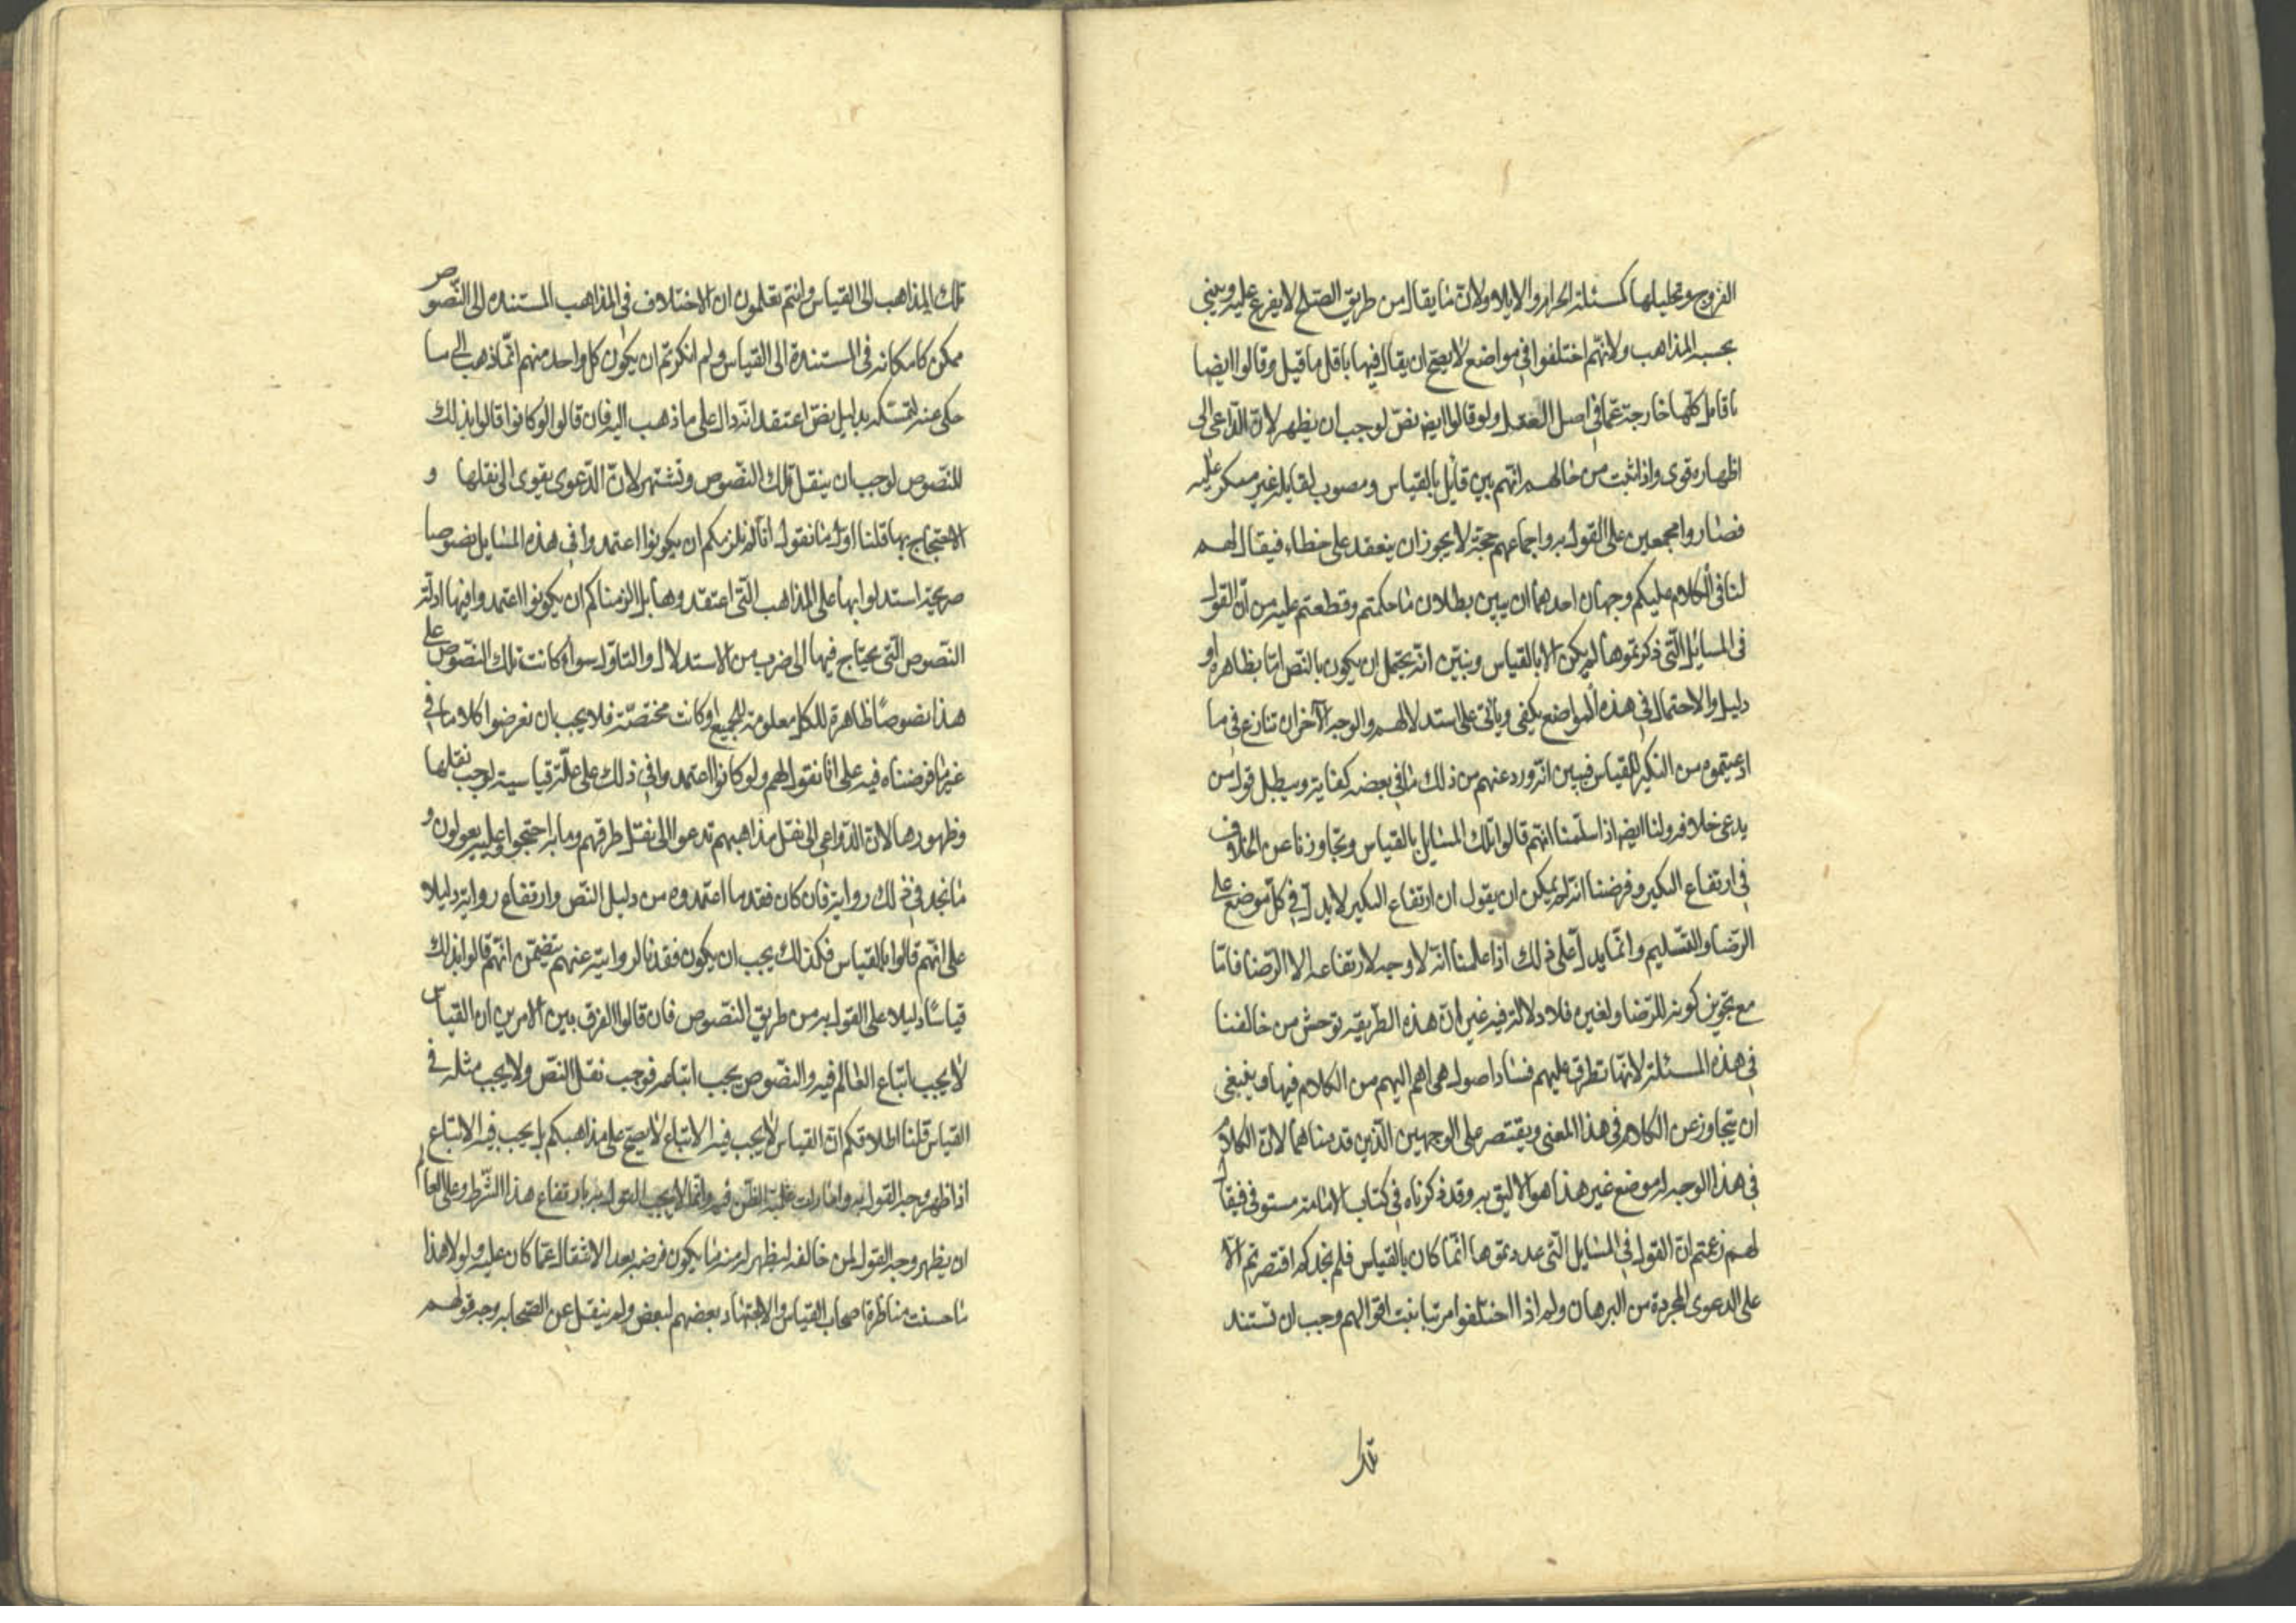 الفروج وتحليلها كمسئلة الحرام والايلاء ولان ما يقال من طريق الصلح لا يفرع عليه ويبنى
بحسبه المذاهب ولانهم اختلفوا في مواضع لا يصح ان يقال فيها باقل ما قيل وقالوا ايضا
باقاويل كلها خارجة عما في اصل العقل ولو قالوا ايضا بنص لوجب ان يظهر لان الداعى الى
اظهاره قوى واذا ثبت من حالهم انهم بين قايل بالقياس ومصوب لقايله غير منكر عليه
فصاروا مجمعين على القول به واجماعهم حجة لا يجوز ان ينعقد على خطاء فيقال لهم
لنا في الكلام عليكم وجهان احدهما ان يبين بطلان ما حكمتم وقطعتم عليه من ان القول
في المسايل التى ذكرتموها لم يكن الا بالقياس ونبين انه يحتمل ان يكون بالنص اما بظاهره او
دليل والاحتمال في هذه المواضع يكفى ويأتى على استدلالهم والوجه الآخر ان تنازع في ما
ادعيتموه من النكير للقياس فيبين انه ورد عنهم من ذلك ما في بعضه كفاية ويبطل قول من
يدعى خلافه ولنا ايضا اذا سلمنا انهم قالوا تلك المسايل بالقياس وتجاوزنا عن الخلاف
في ارتفاع النكير وفرضنا انه لم يكن ان يقول ان ارتفاع النكير لا يدل في كل موضع على
الرضا والتسليم وانما يدل على ذلك اذا علمنا انه لا وجه لارتفاعه الا الرضا فاما
مع تجويز كونه للرضا ولغيره فلا دلالة فيه غير ان هذه الطريقة توحش من خالفنا
في هذه المسئلة لانها تطرق عليهم فساد اصول هى اهم اليهم من الكلام فيها وينبغى
ان يتجاوز عن الكلام في هذا المعنى ويقتصر على الوجهين الذين قدمناهما لان الكلام
في هذا الوجه له موضع غير هذا هو الاليق به وقد ذكرناه في كتاب الامامة مستوفى فيقال
لهم زعمتم ان القول في المسايل التى عددتموها انما كان بالقياس فلم نجدكم اقتصرتم الا
على الدعوى المجردة من البرهان ولم اذا اختلفوا وتباينت اقوالهم وجب ان تستند
تلك
تلك المذاهب الى القياس وانتم تعلمون ان الاختلاف في المذاهب المستندة الى النصوص
ممكن كامكانه في المستندة الى القياس ولم انكرتم ان يكون كل واحد منهم انما ذهب الى ما
حكى عنه لتمسكه بدليل نص اعتقد انه دال على ما ذهب اليه فان قالوا لو كانوا قالوا بذلك
للنصوص لوجب ان ينقل تلك النصوص وتشتهر لان الدعوى يقوى الى نقلها و
الاحتجاج بها قلنا اول ما نقول انا لم نلزمكم ان يكونوا اعتمدوا في هذه المسايل نصوصا
صريحة استدلوا بها على المذاهب التى اعتقدوها بل الزمناكم ان يكونوا اعتمدوا فيها ادلة
النصوص التى يحتاج فيها الى ضرب من الاستدلال والتاول سواء كانت تلك النصوص على
هذا نصوصًا ظاهرة للكل معلومة للجميع او كانت مختصة فلا يجب ان نعرضوا كلاما في
غير ما فرضناه فيه على انا نقول لهم ولو كانوا اعتمدوا في ذلك على علة قياسية لوجب نقلها
وظهورها لان الدواعى الى نقل مذاهبهم تدعوا الى نقل طرقهم وما به احتجوا وعليه يعولون و
ما نجد في ذلك رواية فان كان فقد ما اعتمدوه من دليل النص وارتفاع رواية دليلا
على انهم قالوا بالقياس فكذلك يجب ان يكون فقدنا لرواية عنهم يتضمن انهم قالوا بذلك
قياسًا دليلا على القول به من طريق النصوص فان قالوا الفرق بين الامرين ان القياس
لا يجب اتباع العالم فيه والنصوص يجب اتباعه فوجب نقل النص ولا يجب مثله في
القياس قلنا اطلاقكم ان القياس لا يجب فيه الاتباع لا يصح على مذاهبكم بل يجب فيه الاتباع
اذا ظهر وجه القول به وامارات غلبة الظن فيه وانما لا يجب القول به بارتفاع هذا الشرط وعلى العالم
ان يظهر وجه القول لمن خالفه ليظهر له منه ما يكون فرضه بعد الانتقال عما كان عليه ولولا هذا
ما حسنت مناظرة اصحاب القياس والاجتهاد بعضهم لبعض ولم ينقل عن الصحابة وجه قولهم